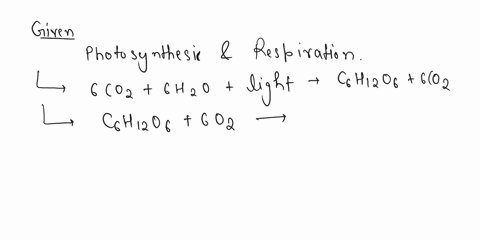 Given
Photosynthesis & Respiration.
6CO2 + 6H2O + light → C6H12O6 + 6CO2
C6H12O6 + 6O2 →